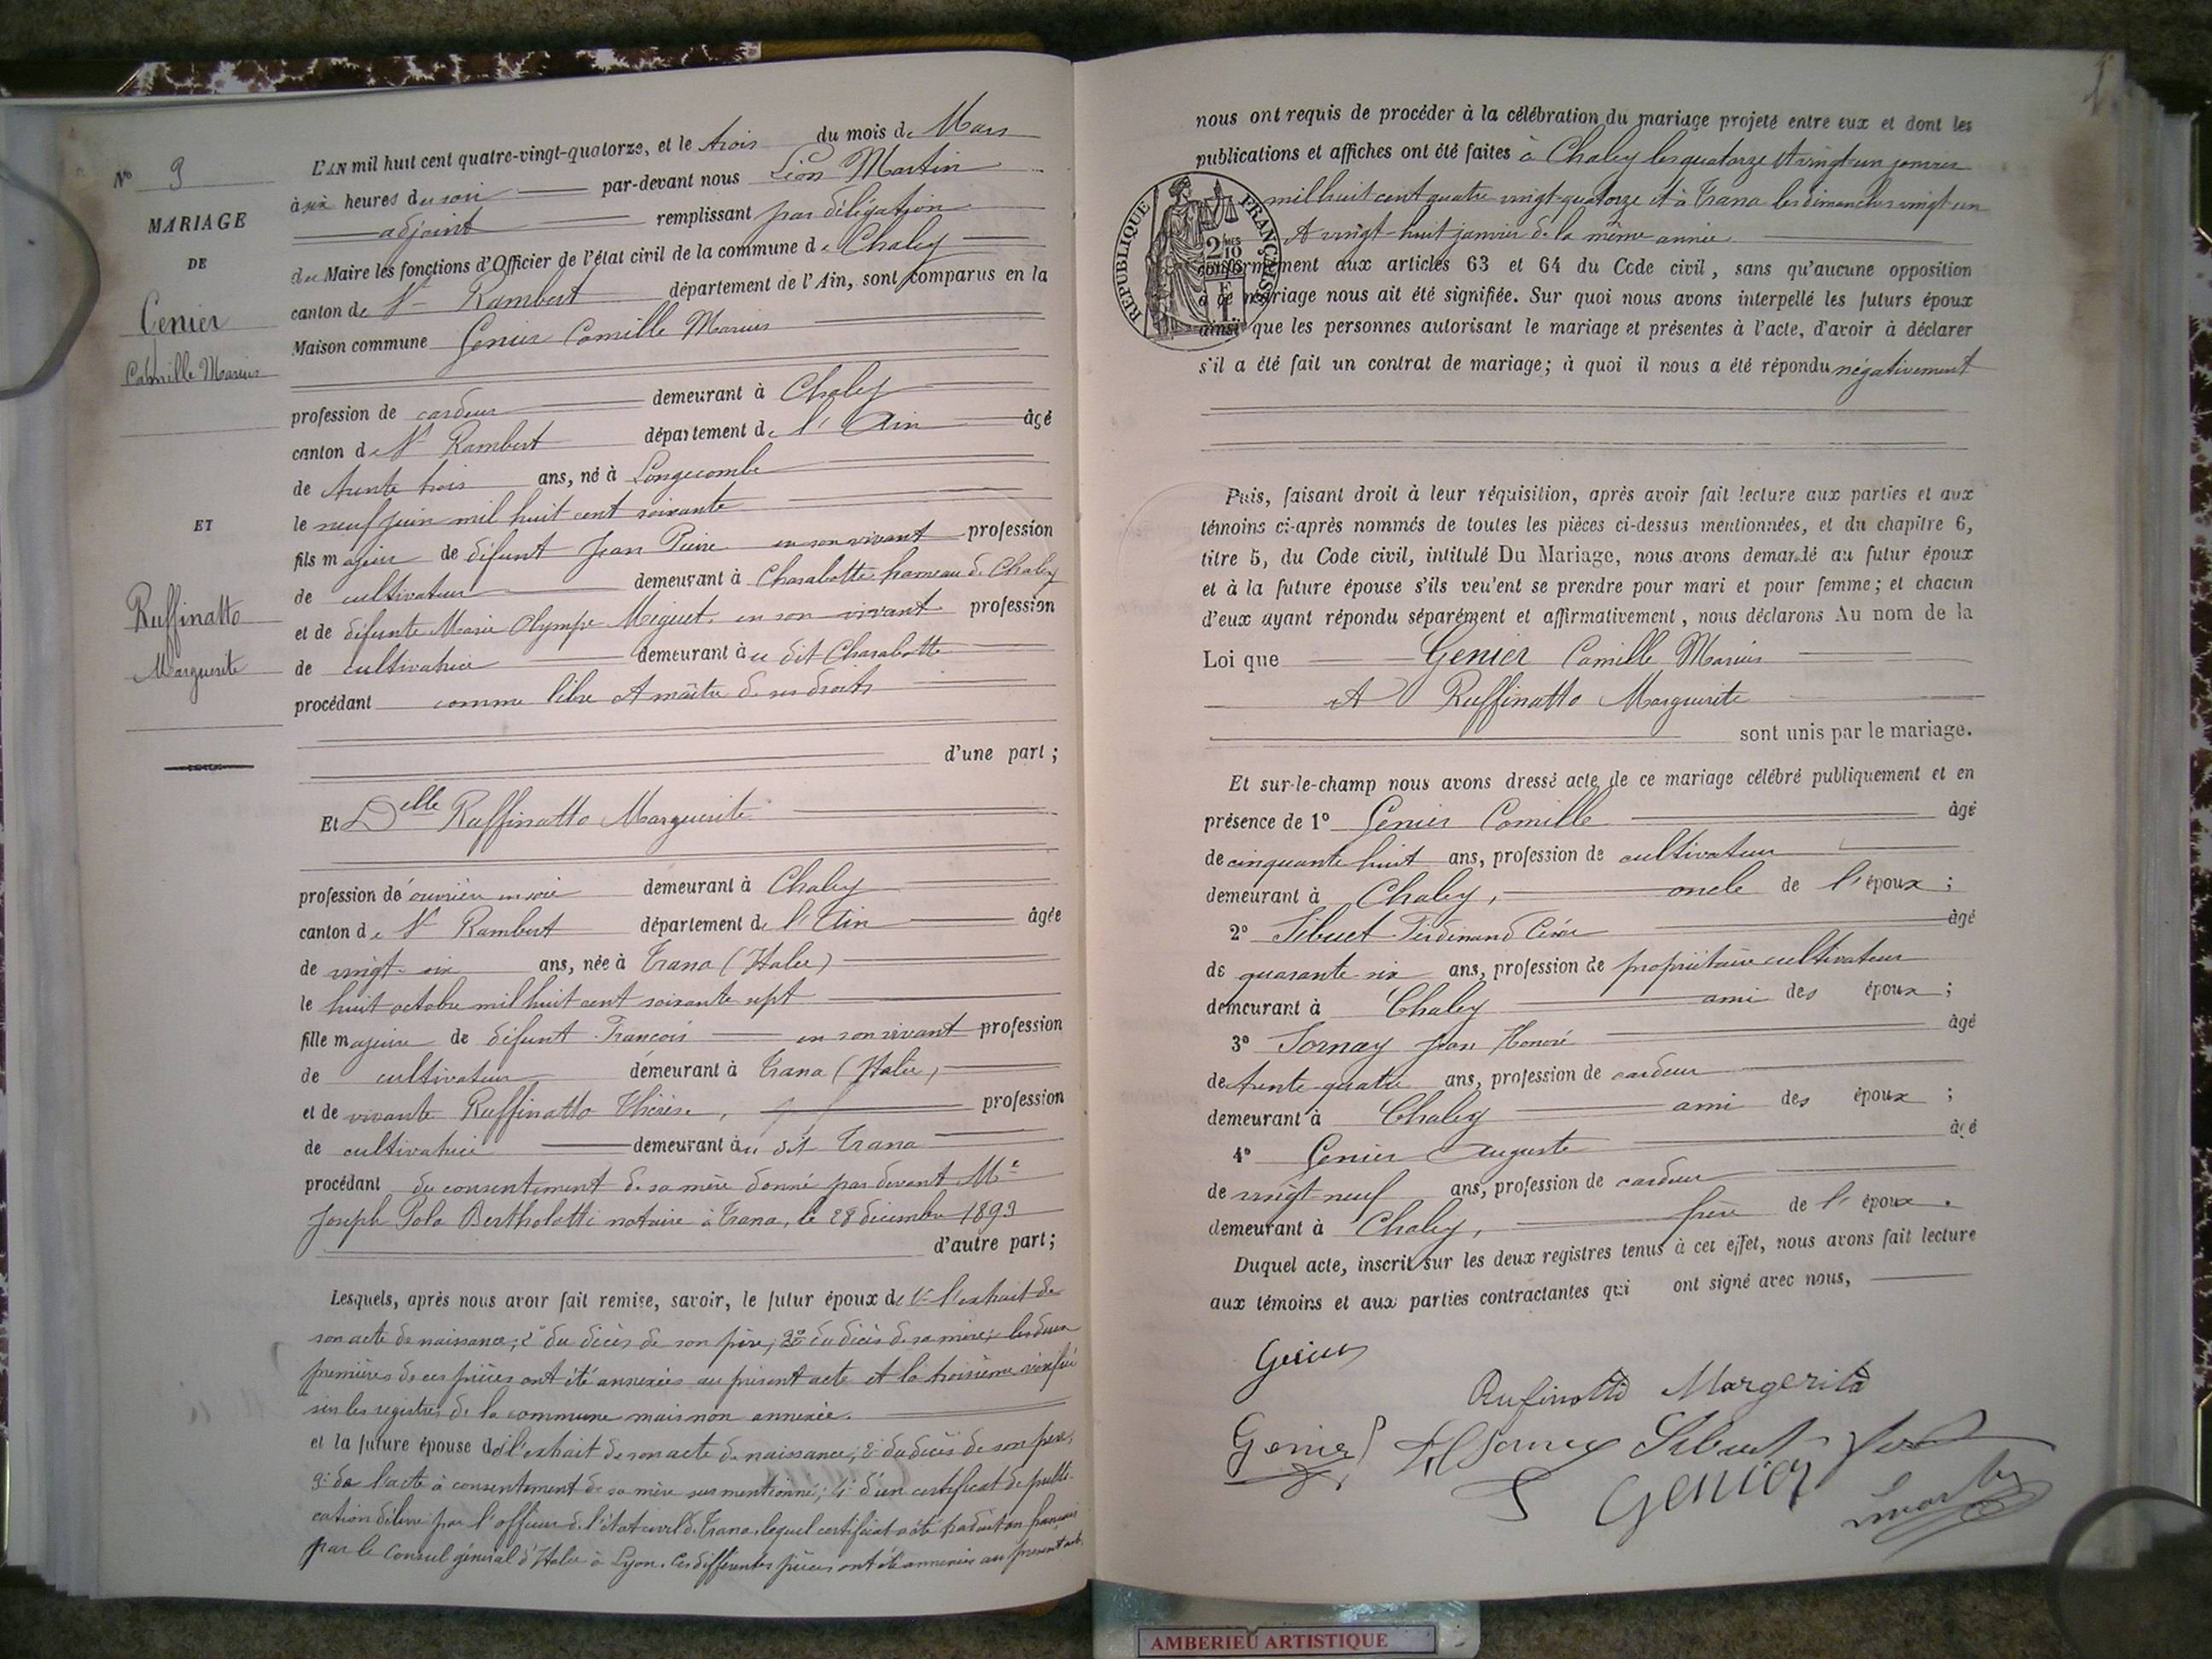 N° 3
MARIAGE
DE
Genier
Camille Marius
ET
Ruffinatto
Marguerite
L'AN mil huit cent quatre-vingt-quatorze, et le trois du mois de Mars
à six heures du soir par-devant nous Léon Martin
adjoint remplissant par délégation
du Maire les fonctions d'Officier de l'état civil de la commune de Chaley
canton de St Rambert département de l'Ain, sont comparus en la
Maison commune Genier Camille Marius
profession de cardeur demeurant à Chaley
canton de St Rambert département de l'Ain âgé
de trente trois ans, né à Longecombe
le neuf juin mil huit cent soixante
fils majeur de défunt Jean Pierre en son vivant profession
de cultivateur demeurant à Charabotte hameau de Chaley
et de défunte Marie Olympe Miguet en son vivant profession
de cultivatrice demeurant à u dit Charabotte
procédant comme libre et maître de ses droits
d'une part ;
Et Delle Ruffinatto Marguerite
profession de ouvrière en soie demeurant à Chaley
canton de St Rambert département de l'Ain âgée
de vingt-six ans, née à Trana (Italie)
le huit octobre mil huit cent soixante sept
fille majeure de défunt François en son vivant profession
de cultivateur demeurant à Trana (Italie)
et de vivante Ruffinatto Thérèse, profession
de cultivatrice demeurant à u dit Trana
procédant du consentement de sa mère donné par devant Me
Joseph Polo Bertholotti notaire à Trana, le 28 décembre 1893
d'autre part ;
Lesquels, après nous avoir fait remise, savoir, le futur époux de 1° l'extrait de
son acte de naissance ; 2° du décès de son père ; 3° du décès de sa mère ; les deux
premières de ces pièces ont été annexées au présent acte et la troisième vérifiée
sur les registres de la commune mais non annexée.
et la future épouse de l'extrait de son acte de naissance ; 2° du décès de son père ;
3° de l'acte à consentement de sa mère sus mentionné ; 4° d'un certificat de publi-
cation délivré par l'officier de l'état civil de Trana, lequel certificat a été traduit en français
par le Consul général d'Italie à Lyon. Ces différentes pièces ont été annexées au présent acte.
nous ont requis de procéder à la célébration du mariage projeté entre eux et dont les
publications et affiches ont été faites à Chaley les quatorze et vingt un janvier
mil huit cent quatre vingt-quatorze et à Trana les dimanches vingt un
et vingt-huit janvier de la même année
REPUBLIQUE FRANÇAISE
2/10
conformément aux articles 63 et 64 du Code civil, sans qu'aucune opposition
à ce mariage nous ait été signifiée. Sur quoi nous avons interpellé les futurs époux
ainsi que les personnes autorisant le mariage et présentes à l'acte, d'avoir à déclarer
s'il a été fait un contrat de mariage ; à quoi il nous a été répondu négativement
Puis, faisant droit à leur réquisition, après avoir fait lecture aux parties et aux
témoins ci-après nommés de toutes les pièces ci-dessus mentionnées, et du chapitre 6,
titre 5, du Code civil, intitulé Du Mariage, nous avons demandé au futur époux
et à la future épouse s'ils veulent se prendre pour mari et pour femme ; et chacun
d'eux ayant répondu séparément et affirmativement, nous déclarons Au nom de la
Loi que Genier Camille Marius
et Ruffinatto Marguerite
sont unis par le mariage.
Et sur-le-champ nous avons dressé acte de ce mariage célébré publiquement et en
présence de 1° Genier Camille âgé
de cinquante huit ans, profession de cultivateur
demeurant à Chaley, oncle de l'époux ;
2° Sibuet Ferdinand César âgé
de quarante-six ans, profession de propriétaire cultivateur
demeurant à Chaley ami des époux ;
3° Tornay Jean Honoré âgé
de trente-quatre ans, profession de cardeur
demeurant à Chaley ami des époux ;
4° Genier Auguste âgé
de vingt-neuf ans, profession de cardeur
demeurant à Chaley, frère de l'époux.
Duquel acte, inscrit sur les deux registres tenus à cet effet, nous avons fait lecture
aux témoins et aux parties contractantes qui ont signé avec nous,
Genier
Rufinatto Margerita
Genier Sibuet
Genier
AMBERIEU ARTISTIQUE